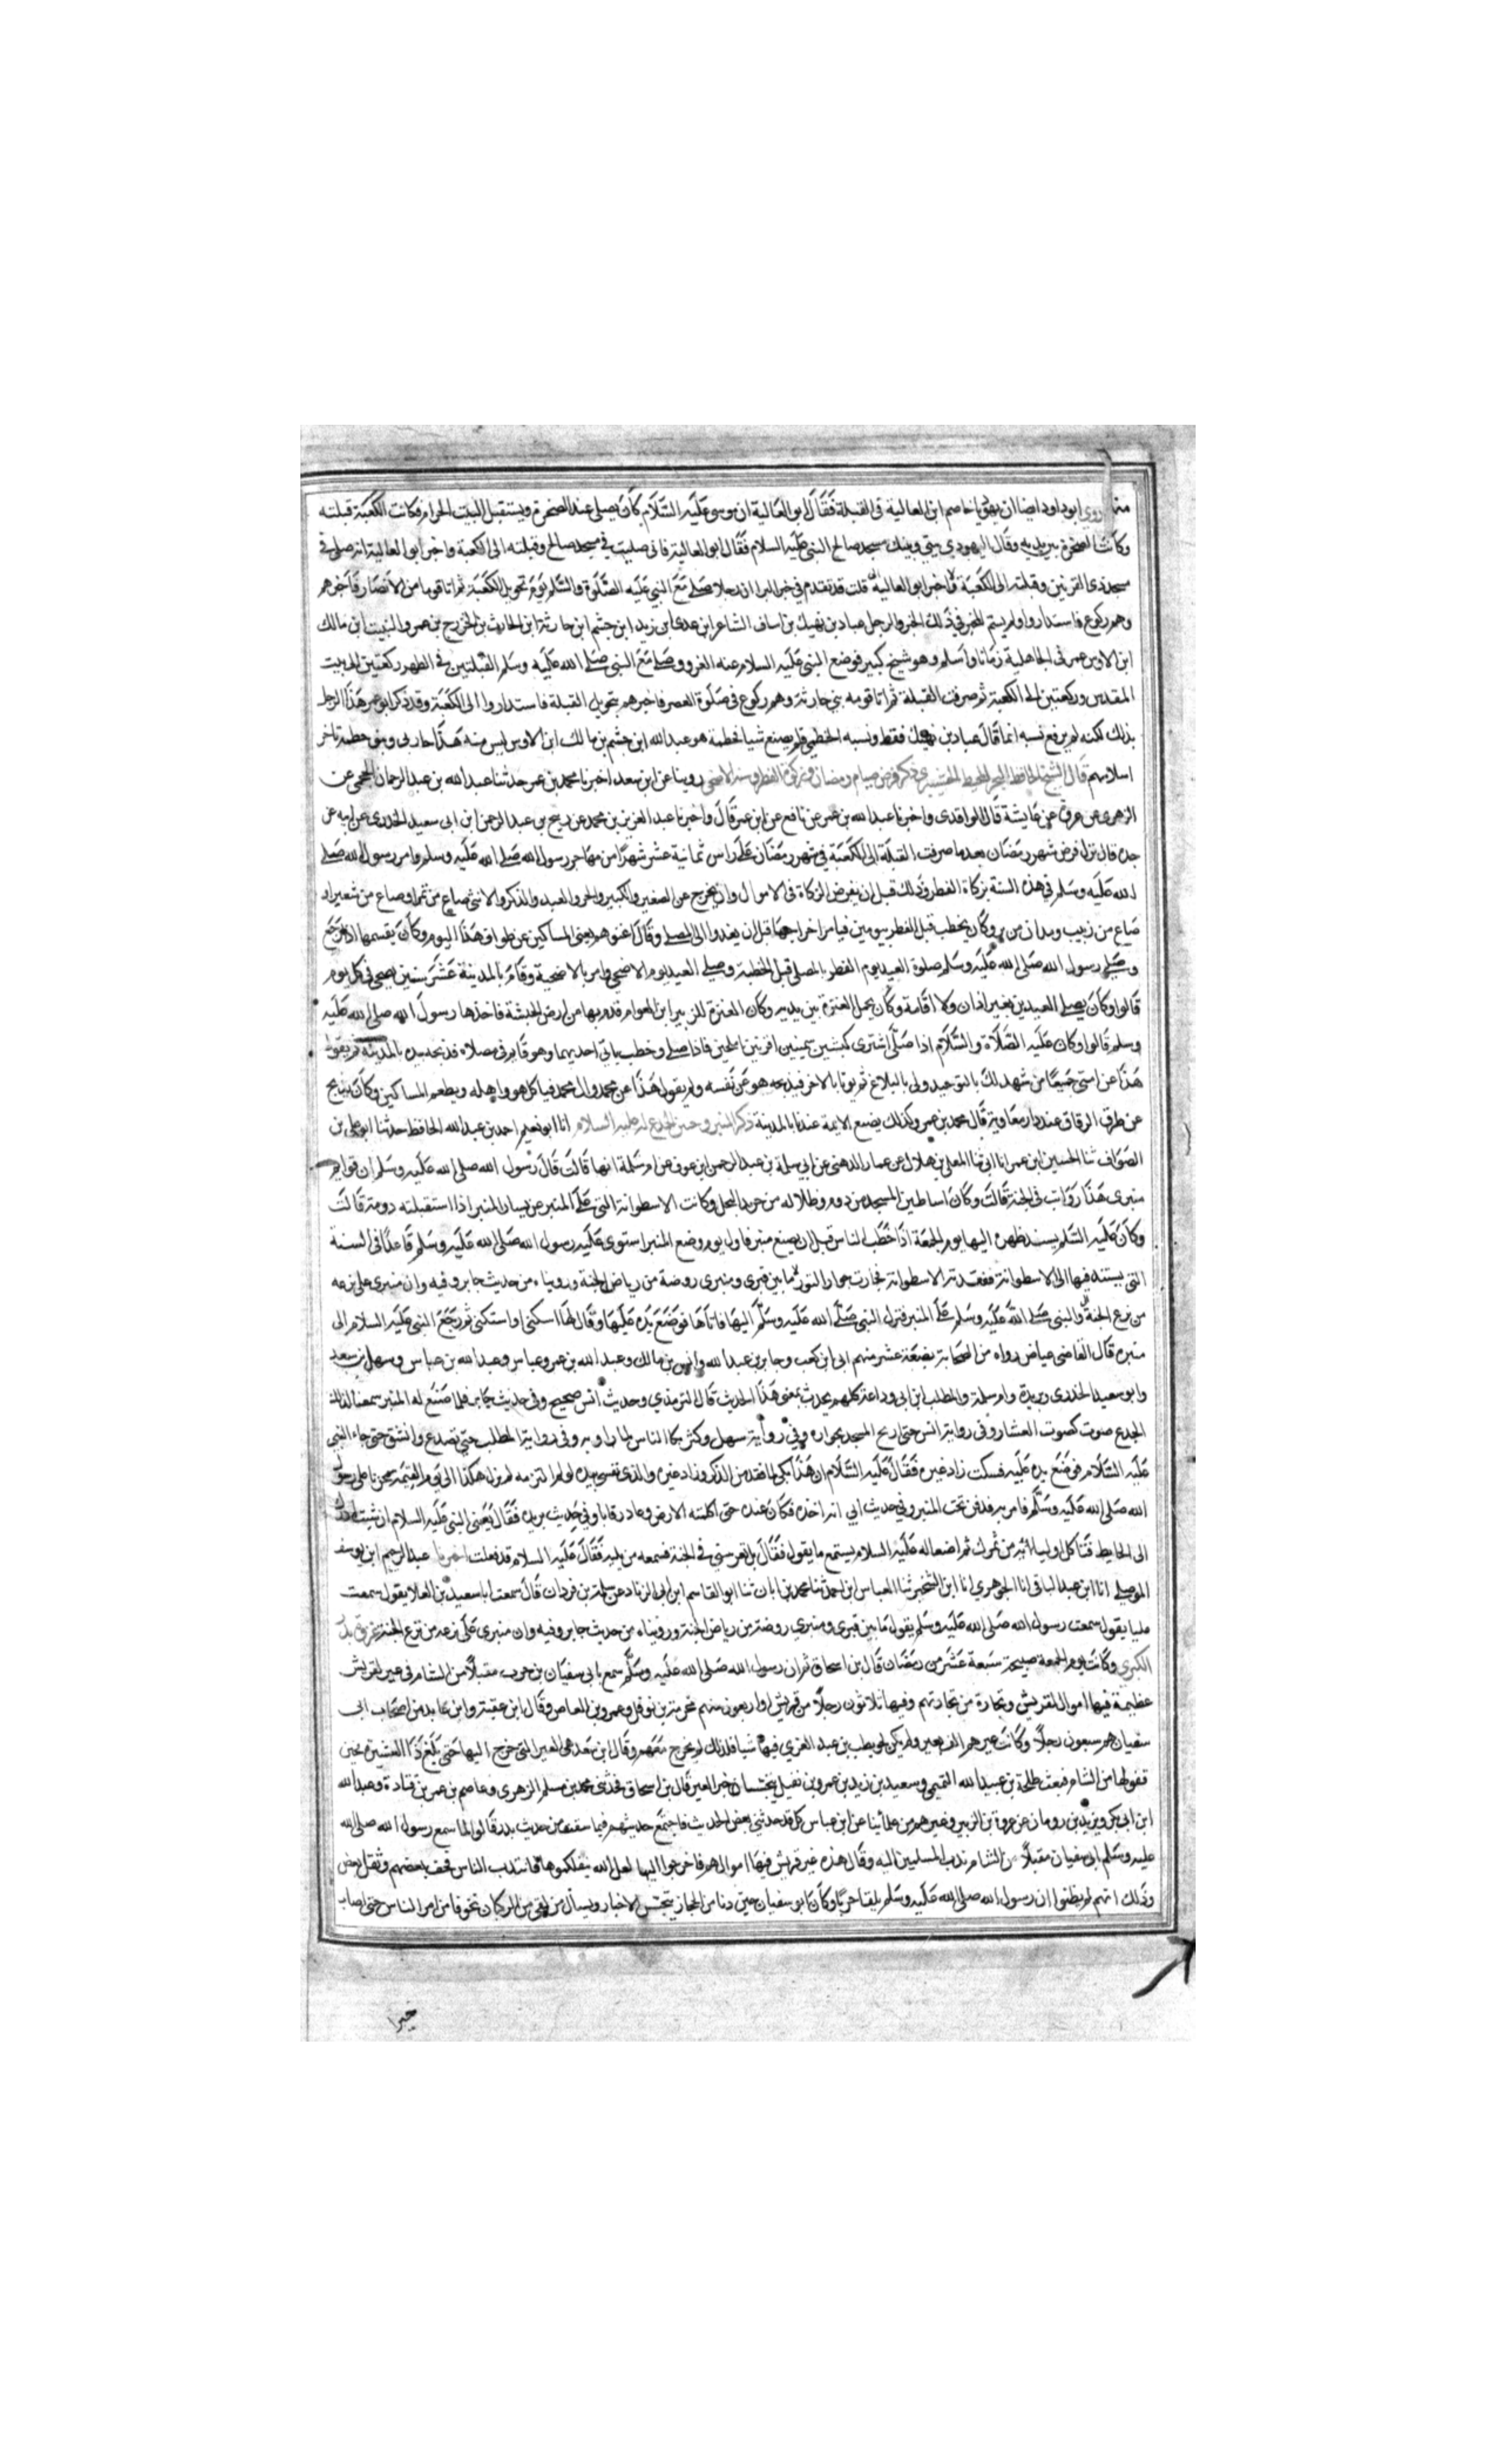 منه وروي ابو داود ايضا ان يهوديا خاصم ابا العالية في القبلة فقال ابو العالية ان موسى عليه السلام كان يصلي عند الصخرة ويستقبل البيت الحرام فكانت الكعبة قبلته
وكانت الصخرة بين يديه وقال اليهودي بيني وبينك مسجد صالح النبي عليه السلام فقال ابو العالية فاني صليت في مسجد صالح وقبلته الى الكعبة واخبر ابو العالية انه صلى في
مسجد ذى القرنين وقبلته الى الكعبة واخبر ابو العالية قلت قد تقدم في خبر البرا ان رجلا صلى مع النبي عليه الصلوة والسلم يوم تحويل الكعبة ثم اتا قوما من الانصار فاخبرهم
وهم ركوع فاستداروا ولم يسم المخبر في ذلك الخبر والرجل عباد بن نهيك بن اساف الشاعر ابن عدى ابن زيد ابن جشم ابن حارثة ابن الحارث بن الخزرج بن عمرو النبيت ابن مالك
ابن الاوس عمر في الجاهلية زمانا واسلم وهو شيخ كبير فوضع النبي عليه السلام عنه الغزو وصلى مع النبي صلى الله عليه وسلم القبلتين في الظهر ركعتين الى بيت
المقدس وركعتين الى الكعبة ثم صرفت القبلة ثم اتا قومه بني حارثة وهم ركوع في صلوة العصر فاخبرهم بتحويل القبلة فاستداروا الى الكعبة وقد ذكر ابو عمر هذا الرجل
بذلك لكنه لم يرفع نسبه انما قال عباد بن نهيك فقط ونسبه الخطمي فلم يصنع شيا خطمة هو عبد الله ابن جشم بن مالك ابن الاوس ليس منه هذا حارثي وبنو خطمة تاخر
اسلامهم قال الشيخ الحافظ ذكر فرض صيام رمضان وزكوة الفطر وسنة الاضحى روينا عن ابن سعد اخبرنا محمد بن عمر حدثنا عبد الله بن عبد الرحمان الجمحي عن
الزهري عن عروة عن عايشة قال الواقدى واخبرنا عبد الله بن عمر عن نافع عن ابن عمر قال واخبرنا عبد العزيز بن محمد عن ربيح بن عبد الرحمن ابن ابى سعيد الخدري عن ابيه عن
جده قال نزل فرض شهر رمضان بعد ما صرفت القبلة الى الكعبة في شهر رمضان على راس ثمانية عشر شهرا من مهاجر رسول الله صلى الله عليه وسلم وامر رسول الله صلى
الله عليه وسلم في هذه السنة بزكاة الفطر وذلك قبل ان يفرض الزكاة في الاموال وان يخرج عن الصغير والكبير والحر والعبد والذكر والانثى صاع من تمر او صاع من شعير او
صاع من زبيب ومدان من بر وكان يخطب قبل الفطر بيومين فيامر اخراجها قبل ان يغدوا الى المصلى وقال اغنوهم يعني المساكين عن طواف هذا اليوم وكان يقسمها اذا رجع
وصلى رسول الله صلى الله عليه وسلم صلوة العيد يوم الفطر بالمصلى قبل الخطبة وصلى العيد يوم الاضحى وامر بالاضحية وقام بالمدينة عشر سنين يضحي في كل يوم
قالوا وكان يصلى العيدين بغير اذان ولا اقامة وكان يحمل العنزة بين يديه وكان العنزة للزبير ابن العوام قدم بها من ارض الحبشة فاخذها رسول الله صلى الله عليه
وسلم قالوا وكان عليه الصلاة والسلام اذا صلى اشترى كبشين سمينين اقرنين املحين فاذا صلى وخطب ياتي احدهما وهو قايم في مصلاه فذبحه بيده بالمدينة ثم يقول
هذا عن امتي جميعا من شهد لك بالتوحيد ولي بالبلاغ ثم يوتا بالاخر فيذبحه هو عن نفسه ولم يقول هذا عن محمد وال محمد فياكل هو واهله ويطعم المساكين وكان يذبح
عن طرف الزقاق عند دار معاوية قال محمد بن عمر وكذلك يصنع الايمة عندنا بالمدينة ذكر المنبر وحنين الجذع له عليه السلام انا ابو نعيم احمد بن عبد الله الحافظ حدثنا ابو علي بن
الصواف ثنا الحسين ابن عمر انا ابي ثنا المعلى بن هلال عن عمار الدهني عن ابي سلمة بن عبد الرحمن ابن عوف عن ام سلمة انها قالت قال رسول الله صلى الله عليه وسلم ان قوايم
منبرى هذا رواتب في الجنة قالت وكان اساطين المسجد من دوم وظلاله من جريد النخل وكانت الاسطوانة التى على المنبر عن يسار المنبر اذا استقبلته دومة قالت
وكان عليه السلم يسند ظهره اليها يوم الجمعة اذا خطب الناس قبل ان يصنع منبر فاول يوم وضع المنبر استوى عليه رسول الله صلى الله عليه وسلم قاعدا في السنة
التي يستند فيها الى الاسطوانة ففقدته الاسطوانة فخارت خوار الثور ما بين قبري ومنبرى روضة من رياض الجنة وروينا من حديث جابر وفيه وان منبرى على ترعة
من ترع الجنة والنبي صلى الله عليه وسلم على المنبر فنزل النبي صلى الله عليه وسلم اليها فاتاها فوضع يده عليها وقال لها اسكني واستكني ثم رجع النبي عليه السلام الى
منبره قال القاضي عياض رواه من الصحابة بضعة عشر منهم ابى ابن كعب وجابر بن عبد الله وانس بن مالك وعبد الله بن عمر وعباس وعبد الله بن عباس وسهل بن سعد
وابو سعيد الخدري وبريدة وام سلمة والمطلب ابن ابى وداعة كلهم يحدث بمعنى هذا الحديث قال الترمذي وحديث انس صحيح وفي حديث جابر فلما صنع له المنبر سمعنا لذلك
الجذع صوت كصوت العشار وفي رواية انس حتى ارتج المسجد بخواره وفي رواية سهل وكثر بكا الناس لما راو به وفي رواية المطلب حتى تصدع وانشق حتى جاء النبي
عليه السلام فوضع يده عليه فسكت زاد غيره فقال عليه السلام ان هذا بكى لما فقد من الذكر وزاد غيره والذى نفسي بيده لو لم التزمه لم يزل هكذا الى يوم القيمة تحزنا على رسول
الله صلى الله عليه وسلم فامر به فدفن تحت المنبر وفي حديث ابي انه اخذه فكان عنده حتى اكلته الارض وعاد رقابا وفي حديث بريدة فقال يعني النبي عليه السلام ان شيت اردك
الى الحايط من ثمرك ثم اصغا له عليه السلام يستمع ما يقول فقال بل تغرسني في الجنة فسمعه من يليه فقال عليه السلام قد فعلت اخبرنا عبد الرحيم ابن يوسف
الموصلي انا ابن عبد الباقي انا الجوهري انا ابن الشخير ثنا العباس ابن احمد ثنا محمد بن ابان ثنا ابو القاسم ابن ابى الزناد عن سلمة بن وردان قال سمعت ابا سعيد بن العلا يقول سمعت
عليا يقول سمعت رسول الله صلى الله عليه وسلم يقول ما بين قبرى ومنبري روضة من رياض الجنة وروينا من حديث جابر وفيه وان منبري على ترعة من ترع الجنة غزوة بدر
الكبرى وكانت يوم الجمعة صبيحة سبعة عشر من رمضان قال بن اسحاق ثم ان رسول الله صلى الله عليه وسلم سمع بابي سفيان بن حرب مقبلا من الشام في عير لقريش
عظيمة فيها اموال لقريش وتجارة من تجارتهم وفيها ثلاثون رجلا من قريش او اربعون منهم مخرمة بن نوفل وعمرو بن العاص وقال ابن عقبة وابن عايد من اصحاب ابى
سفيان هم سبعون رجلا وكانت عيرهم الف بعير ولم يكن لحويطب بن عبد العزي فيها شيا فلذلك لم يخرج معهم وقال ابن سعد هي العير التي خرج اليها حتى بلغ ذا العشيرة تحين
قفولها من الشام فبعث طلحة بن عبيد الله التيمي وسعيد بن زيد بن عمرو بن نفيل يتحسسان خبر العير قال بن اسحاق فحدثني محمد بن مسلم الزهري وعاصم بن عمر بن قتادة وعبد الله
ابن ابى بكر ويزيد بن رومان عن عروة بن الزبير وغيرهم من علمائنا عن ابن عباس كل قد حدثني بعض الحديث فاجتمع حديثهم فيما سقت من حديث بدر قالوا لما سمع رسول الله صلى الله
عليه وسلم ابى سفيان مقبلا من الشام ندب المسلمين اليه وقال هذه عير قريش فيها اموالهم فاخرجوا اليها لعل الله ينفلكموها فانتدب الناس فخف بعضهم وثقل بعض
وذلك انهم لم يظنوا ان رسول الله صلى الله عليه وسلم يلقا حربا وكان ابو سفيان حين دنا من الحجاز يتجسس الاخبار ويسال من لقي من الركبان تخوفا من امر الناس حتى اصاب
خبرا